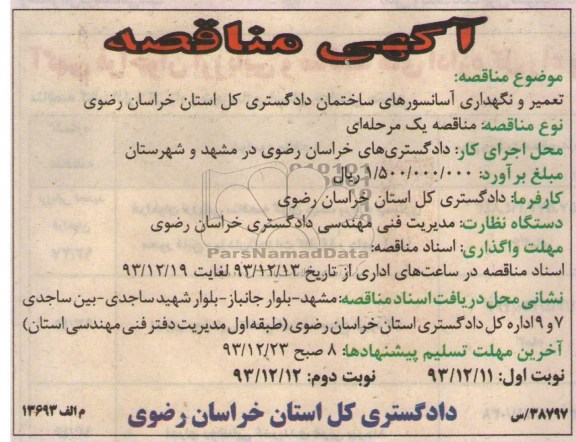 آگهی مناقصه
موضوع مناقصه:
تعمیر و نگهداری آسانسورهای ساختمان دادگستری کل استان خراسان رضوی
نوع مناقصه: مناقصه یک مرحله‌ای
محل اجرای کار: دادگستری‌های خراسان رضوی در مشهد و شهرستان
مبلغ برآورد: ۱/۵۰۰/۰۰۰/۰۰۰ ریال
کارفرما: دادگستری کل استان خراسان رضوی
دستگاه نظارت: مدیریت فنی مهندسی دادگستری خراسان رضوی
مهلت واگذاری: اسناد مناقصه:
اسناد مناقصه در ساعت‌های اداری از تاریخ ۹۳/۱۲/۱۳ لغایت ۹۳/۱۲/۱۹
نشانی محل دریافت اسناد مناقصه: مشهد-بلوار جانباز-بلوار شهید ساجدی-بین ساجدی
۷ و ۹ اداره کل دادگستری استان خراسان رضوی (طبقه اول مدیریت دفتر فنی مهندسی استان)
آخرین مهلت تسلیم پیشنهادها: ۸ صبح ۹۳/۱۲/۲۳
نوبت اول: ۹۳/۱۲/۱۱ نوبت دوم: ۹۳/۱۲/۱۲
۳۸۷۹۷/س دادگستری کل استان خراسان رضوی م الف ۱۳۶۹۳
ParsNamadData